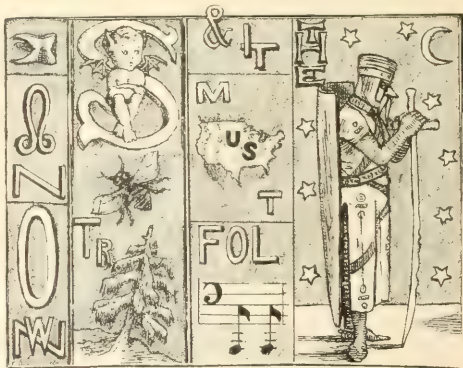 N
O
W
S
TR
& IT
M
US
T
FOL
THE